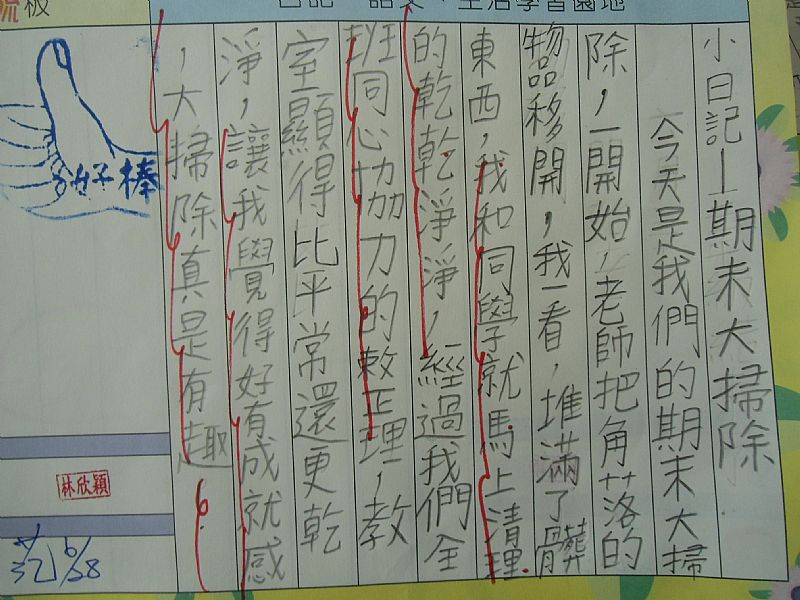 小日記—期末大掃除
今天是我們的期末大掃
除,一開始,老師把角落的
物品移開,我一看,堆滿了髒
東西,我和同學就馬上清理
的乾乾淨淨,經過我們全
班同心協力的整理,教
室顯得比平常還更乾
淨,讓我覺得好有成就感
,大掃除真是有趣。
好棒
林欣穎